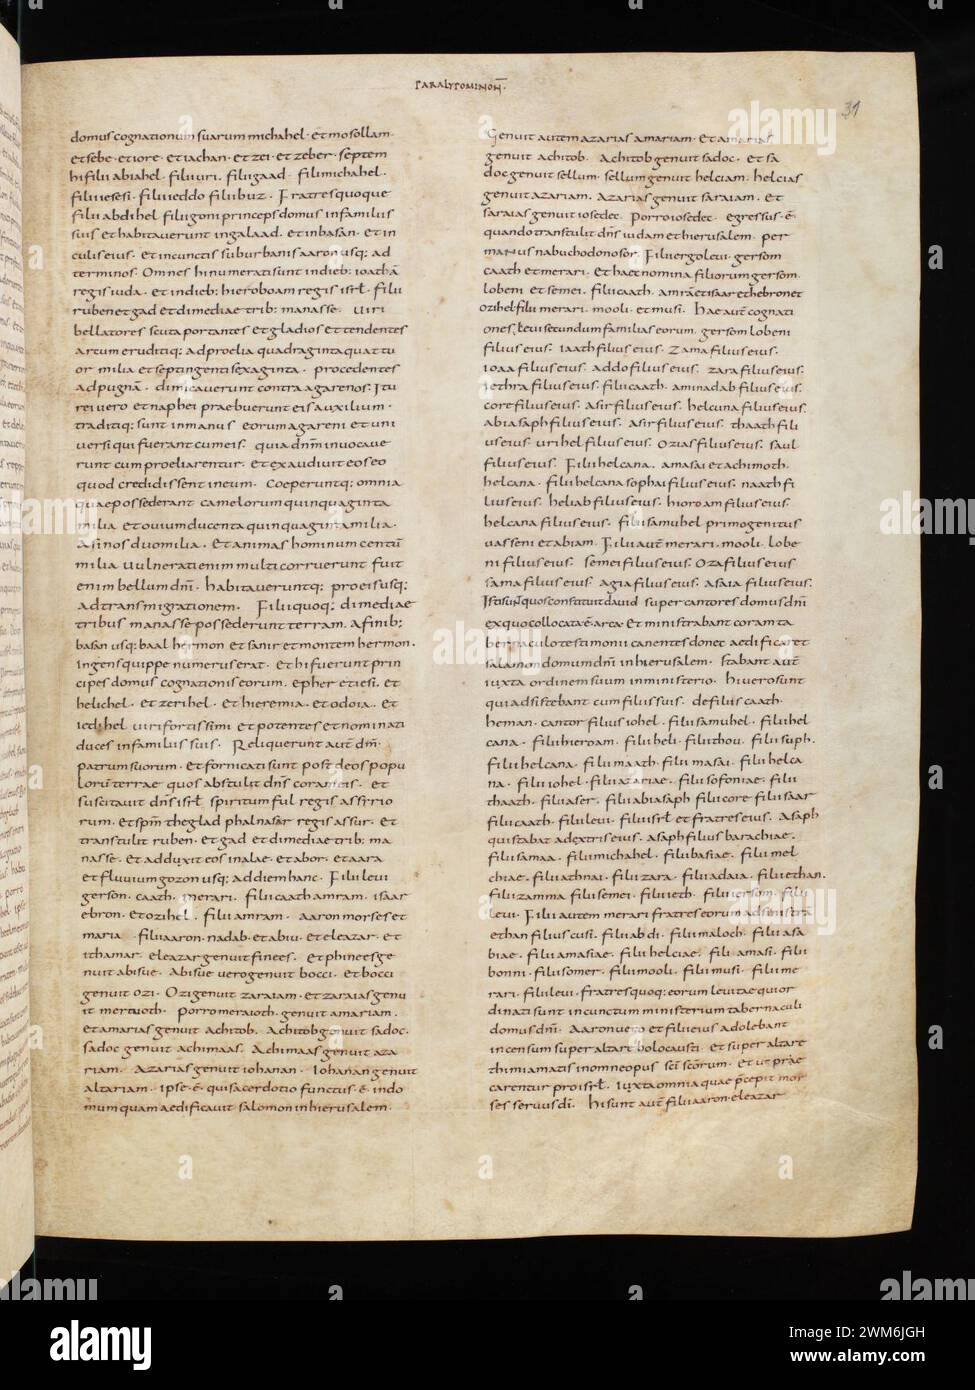 PARALYPOMINON̄·
31
domus cognationum suarum michahel · et mosollam ·
et sebe · et iore · et iachan · et zei · et zeber · septem
hi filii abiahel · filii uri · filii gaad · filii michahel ·
filii iesesi · filii ieddo filii buz · Fratres quoque
filii abdihel filii goni princeps domus in familiis
suis et habitauerunt in galaad · et in basan · et in
culis eius · et in cunctis suburbanis aaron usq; ad
terminos · Omnes hi numerati sunt in dieb; ioathā
regis iuda · et in dieb; hieroboam regis isrl̄ · filii
ruben et gad et dimediae trib; manasse · uiri
bellatores scuta portantes et gladios et tendentes
arcum eruditiq; ad proelia quadraginta quattu
or milia et septingenti sexaginta · procedentes
ad pugnā · dimicauerunt contra agarenos · Itu
rei uero et naphei praebuerunt eis auxilium ·
traditiq; sunt in manus eorum agareni et uni
uersi qui fuerant cum eis · quia dn̄m inuocaue
runt cum proeliarentur · et exaudiuit eos eo
quod credidissent in eum · Coeperuntq; omnia
quae possederant camelorum quinquaginta
milia et ouium ducenta quinquaginta milia ·
asinos duo milia · et animas hominum centū
milia uulnerati enim multi corruerunt fuit
enim bellum dn̄i · habitaueruntq; pro eis usq;
ad transmigrationem · Filii quoq; dimediae
tribus manasse possederunt terram · a finib;
basan usq; baal hermon et sanir et montem hermon ·
ingens quippe numerus erat · et hi fuerunt prin
cipes domus cognationis eorum · epher et iesi · et
helichel · et zerihel · et hieremia · et odoia · et
iedihel uiri fortissimi et potentes et nominati
duces in familiis suis · Reliquerunt autē dm̄
patrum suorum · et fornicati sunt post deos popu
lorū terrae quos abstulit dn̄s coram eis · et
suscitauit dn̄s isrl̄ spiritum ful regis assirio
rum · et spm̄ theglad phalnasar regis assur · et
transtulit ruben · et gad et dimediae trib; ma
nasse · et adduxit eos in alae · et abor · et aara
et fluuium gozon usq; ad diem hanc · Filii leui
gerson · caath · merari · filii caath amram · isaar
ebron · et ozihel · filii amram · aaron morses et
maria · filii aaron · nadab · et abiu · et eleazar · et
ithamar · eleazar genuit finees · et phinees ge
nuit abisue · Abisue uero genuit bocci · et bocci
genuit ozi · Ozi genuit zaraiam · et zaraias genu
it meraioth · Porro meraioth · genuit amariam ·
et amarias genuit achitob · Achitob genuit sadoc ·
sadoc genuit achimaas · Achimaas genuit aza
riam · Azarias genuit iohanan · Iohanan genuit
altariam · ipse · ē · qui sacerdotio functus · ē · in do
mum quam aedificauit salomon in hierusalem ·
Genuit autem azarias amariam · et amarias
genuit achitob · Achitob genuit sadoc · et sa
doc genuit sellum · sellum genuit helciam · helcias
genuit azariam · Azarias genuit saraiam · et
saraias genuit iosedec · Porro iosedec · egressus · ē ·
quando transtulit dn̄s iudam et hierusalem · per
manus nabuchodonosor · Filii ergo leui · gersom
caath et merari · et haec nomina filiorum gersom ·
lobeni et semei · filii caath · amrā et isaar et hebron et
ozihel filii merari · mooli · et musi · Hae autē cognati
ones leui secundum familias eorum · gersom lobeni
filius eius · iaath filius eius · zama filius eius ·
ioaa filius eius · addo filius eius · zara filius eius ·
iethra filius eius · filii caath · aminadab filius eius ·
core filius eius · asir filius eius · helcana filius eius ·
abiasaph filius eius · asir filius eius · thaath fili
us eius · urihel filius eius · ozias filius eius · saul
filius eius · Filii helcana · amasai et achimoth ·
helcana · filii helcana sophai filius eius · naath fi
lius eius · heliab filius eius · hieroam filius eius ·
helcana filius eius · filii samuhel primogenitus
uasseni et abiam · Filii autē merari · mooli · lobe
ni filius eius · semei filius eius · oza filius eius ·
sama filius eius · agia filius eius · asaia filius eius ·
Isti sunt quos constituit dauid super cantores domus dn̄i
ex quo collocata ē arca · et ministrabant coram ta
bernaculo testimonii canentes donec aedificaret
salamon domum dn̄i in hierusalem · stabant autē
iuxta ordinem suum in ministerio · hi uero sunt
qui adsistebant cum filiis suis · de filiis caath ·
heman · cantor filius iohel · filii samuhel · filii hel
cana · filii hieroam · filii heli · filii thou · filii suph ·
filii helcana · filii maath · filii masai · filii helca
na · filii iohel · filii azariae · filii sofoniae · filii
thaath · filii aser · filii abiasaph filii core filii isaar
filii caath · filii leui · filii isrl̄ et fratres eius · Asaph
qui stabat a dextris eius · asaph filius barachiae ·
filii samaa · filii michahel · filii basiae · filii mel
chiae · filii athnai · filii zara · filii adaia · filii ethan ·
filii zamma · filii semei · filii ieth · filii iersom · filii
leui · Filii autem merari fratres eorum ad sinistra
ethan filius cusi · filii abdi · filii maloch · filii asa
biae · filii amasiae · filii helciae · filii amasi · filii
bonni · filii somer · filii mooli · filii musi · filii me
rari · filii leui · fratres quoq; eorum leuitae qui or
dinati sunt in cunctum ministerium tabernaculi
domus dn̄i · Aaron uero et filii eius adolebant
incensum super altare holocausti · et super altare
thimiamatis in omne opus scī scōrum · et ut prae
carentur pro isrl̄ · iuxta omnia quae p̄cepit mor
ses seruus dī · Hi sunt autē filii aaron · eleazar
alamy
Image ID: 2WM6JGH
www.alamy.com